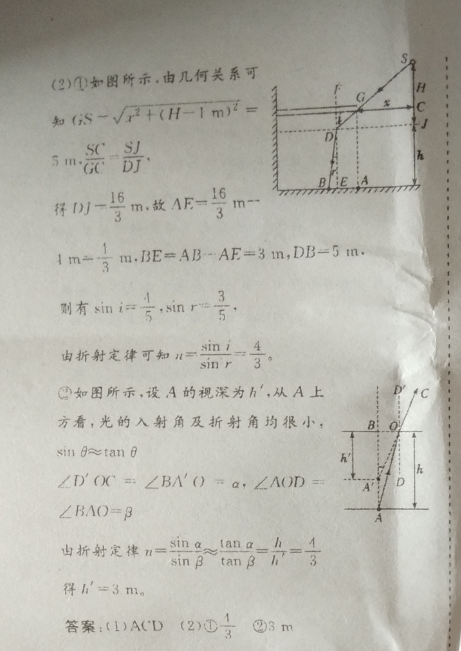 (2)①如图所示,由几何关系可
知 GS=√x²+(H-1 m)² =
5 m,SC/GC=SJ/DJ,
得 DJ=16/3 m,故 AE=16/3 m-
4 m=1/3 m,BE=AB-AE=3 m,DB=5 m,
则有 sin i=4/5,sin r=3/5,
由折射定律可知 n=sin i/sin r=4/3。
②如图所示,设 A 的视深为 h′,从 A 上
方看,光的入射角及折射角均很小,
sin θ≈tan θ
∠D′OC=∠BA′O=α,∠AOD=
∠BAO=β
由折射定律 n=sin α/sin β≈tan α/tan β=h/h′=4/3
得 h′=3 m。
答案:(1)ACD (2)①4/3 ②3 m
S
H
G
x
C
J
D
h
r
B
E
A
D′
C
B
O
h′
A′
D
h
A